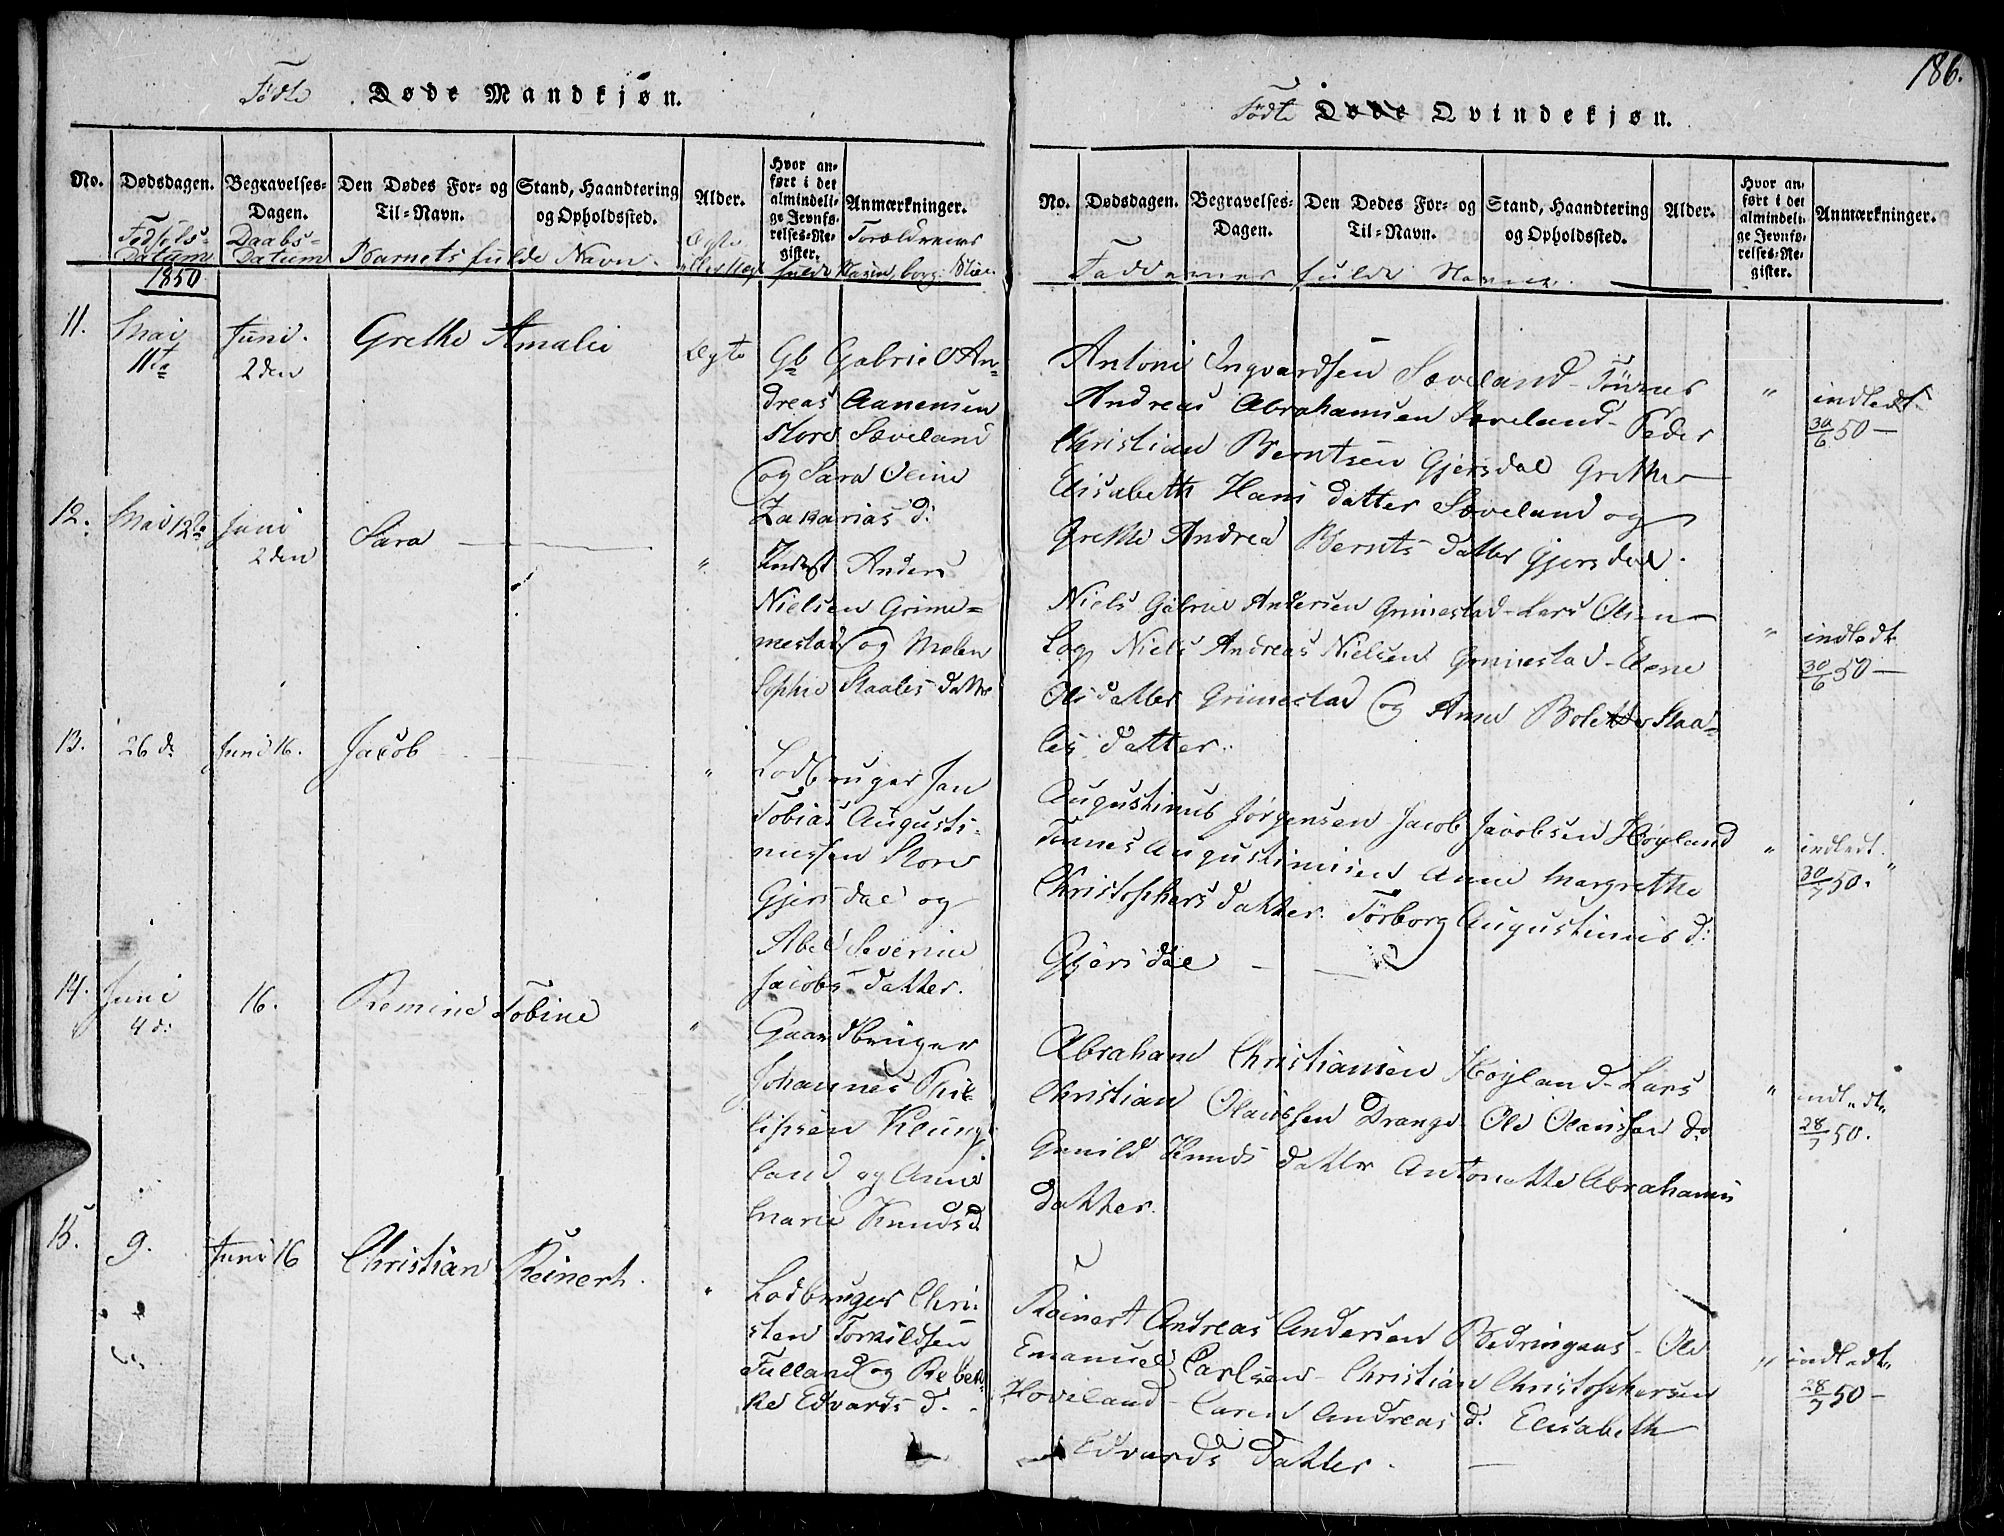 186.
Fødte Døde Mandkjøn.
Fødte Døde Qvindekjøn.
No. Dødsdagen. Begravelses-Dagen. Den Dødes For- og Til-Navn. Stand, Haandtering og Opholdssted. Alder. Hvor anført i det almindelige Jevnførelses-Register. Anmærkninger.
Fødsels-Datum Daabs-Datum Barnets fulde Navn. Ægte eller Uægt Forældrenes fulde Navn, borg. Stil.
No. Dødsdagen. Begravelses-Dagen. Den Dødes For- og Til-Navn. Stand, Haandtering og Opholdssted. Alder. Hvor anført i det almindelige Jevnførelses-Register. Anmærkninger.
Faddernes fulde Navne.
1850
11. Mai 11te Juni 2den Grethe Amalie Ægte
Gb Gabriel An-
dreas Aanensen
Store Sæveland
og Sara Oline
Zakarias d:
Antoni Ingvardsen Sæveland - Tønnes
Andreas Abrahamsen Sæveland - Peder
Christian Berntsen Gjersdal Grethe
Elisabeth Hans datter Sæveland og
Grethe Andrea Bernts datter Gjersdal.
" indledt
30/6 50 —
12. Mai 12te Juni 2den Sara — "
Inderst Anders
Nielsen Grime-
mestad og Malen
Sophie Staales datter
Niels Gabriel Andersen Grimestad - Lars Olsen
Log Niels Andreas Nielsen Grimestad - Elene
Ols datter Grimestad og Anne Bolette Staa-
les datter.
" indledt
30/6 50 —
13. 26 d: Juni 16. Jacob — "
Lodbruger Jan
Tobias Augusti-
nussen Store
Gjersdal og
Abel Severine
Jacobs datter.
Augustinus Jørgensen Jacob Jacobsen Høyland
Tønnes Augustinusen Anne Margrethe
Christophers datter. Torborg Augustinus d:
Gjersdal —
" indledt
30/7 50. "
14. Juni 4 d: 16. Remine Tobine "
Gaardbruger
Johannes Thi-
lipsen Klung-
land og Anne
Marie Knuds d.
Abraham Christiansen Høyland - Lars
Christian Olaussen Drange Ole Olaussen do
Gunild Knuds datter Antonette Abrahams
datter.
" indledt
28/7 50.
15. 9. Juni 16 Christian Reinert. "
Lodbruger Chri-
sten Torkildsen
Fulland og Rebek-
ke Edvards d.
Reinert Andreas Andersen Bedringaas - Ole
Emanuel Carlsen - Christian Christophersen
Hoveland - Caren Andreas d. Elisabeth
Edvards datter. —
" indledt
28/7 50 —